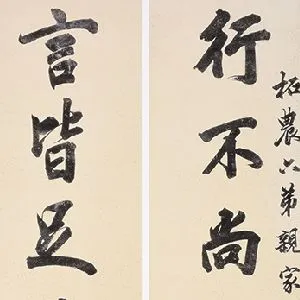 柘農六弟親家
行不尚
言皆足